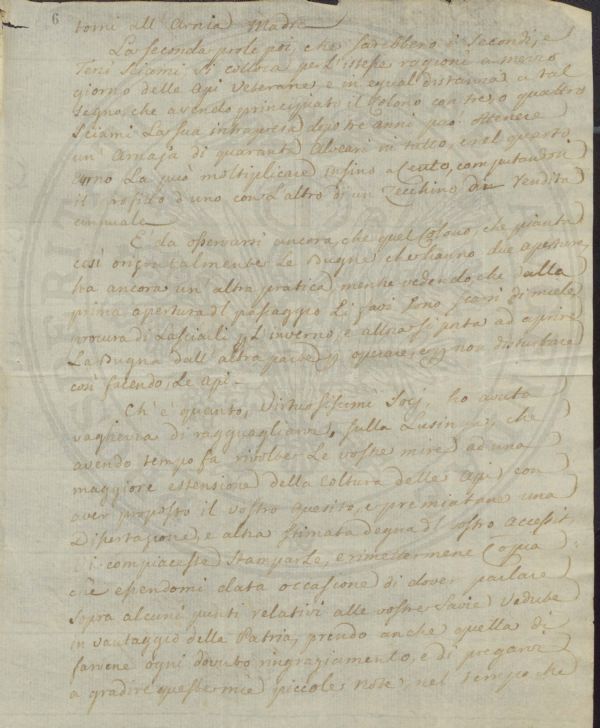 6
torni all'Arnia Madre
La seconda prole poi, che sarebbero i secondi, e
Terzi Sciami si colloca per l'istesse ragioni a mezzo
giorno delle Api Veterane, e in egual distanza a tal
segno, che avendo principiato il Colono con tre, o quattro
Sciami La sua intrapresa dopo tre anni può ottenere
un'Arniaja di quaranta Alveari in tutto, e nel quarto
anno La può moltiplicare insino a Cento, computandosi
il prodotto d'uno con l'altro di un Zecchino di Vendita
annuale
E da osservarsi ancora, che quel Colono, che pianta
così orizontalmente Le Bugna che hanno due aperture,
ha ancora un'altra pratica mentre vedendo, che dalla
prima apertura del passaggio Li favi sono scarsi di miele
procura di Lasciarli l'inverno, e allora si porta ad aprire
La Bugna dall'altra parte operare, e non disturbare
così facendo, Le api.
Ch'è quanto, Virtuosissimi Socj, ho avuta
vaghezza di ragguagliarvi, sulla Lusinga, che
avendo tempo fa rivolte Le vostre mire ad una
maggiore estensione della Coltura delle Api, con
aver proposto il vostro Quesito, e premiatane una
Disertazione, e altra stimata degna del vostro Accessit,
Vi compiaceste stamparle, e rimettermene Copia
che essendomi data occasione di dover parlare
sopra alcuni punti relativi alle vostre Savie Vedute
in vantaggio della Patria, prendo anche quella di
farvene ogni dovuto ringraziamento, e di pregarvi
a gradire queste mie piccole Note, nel tempo che